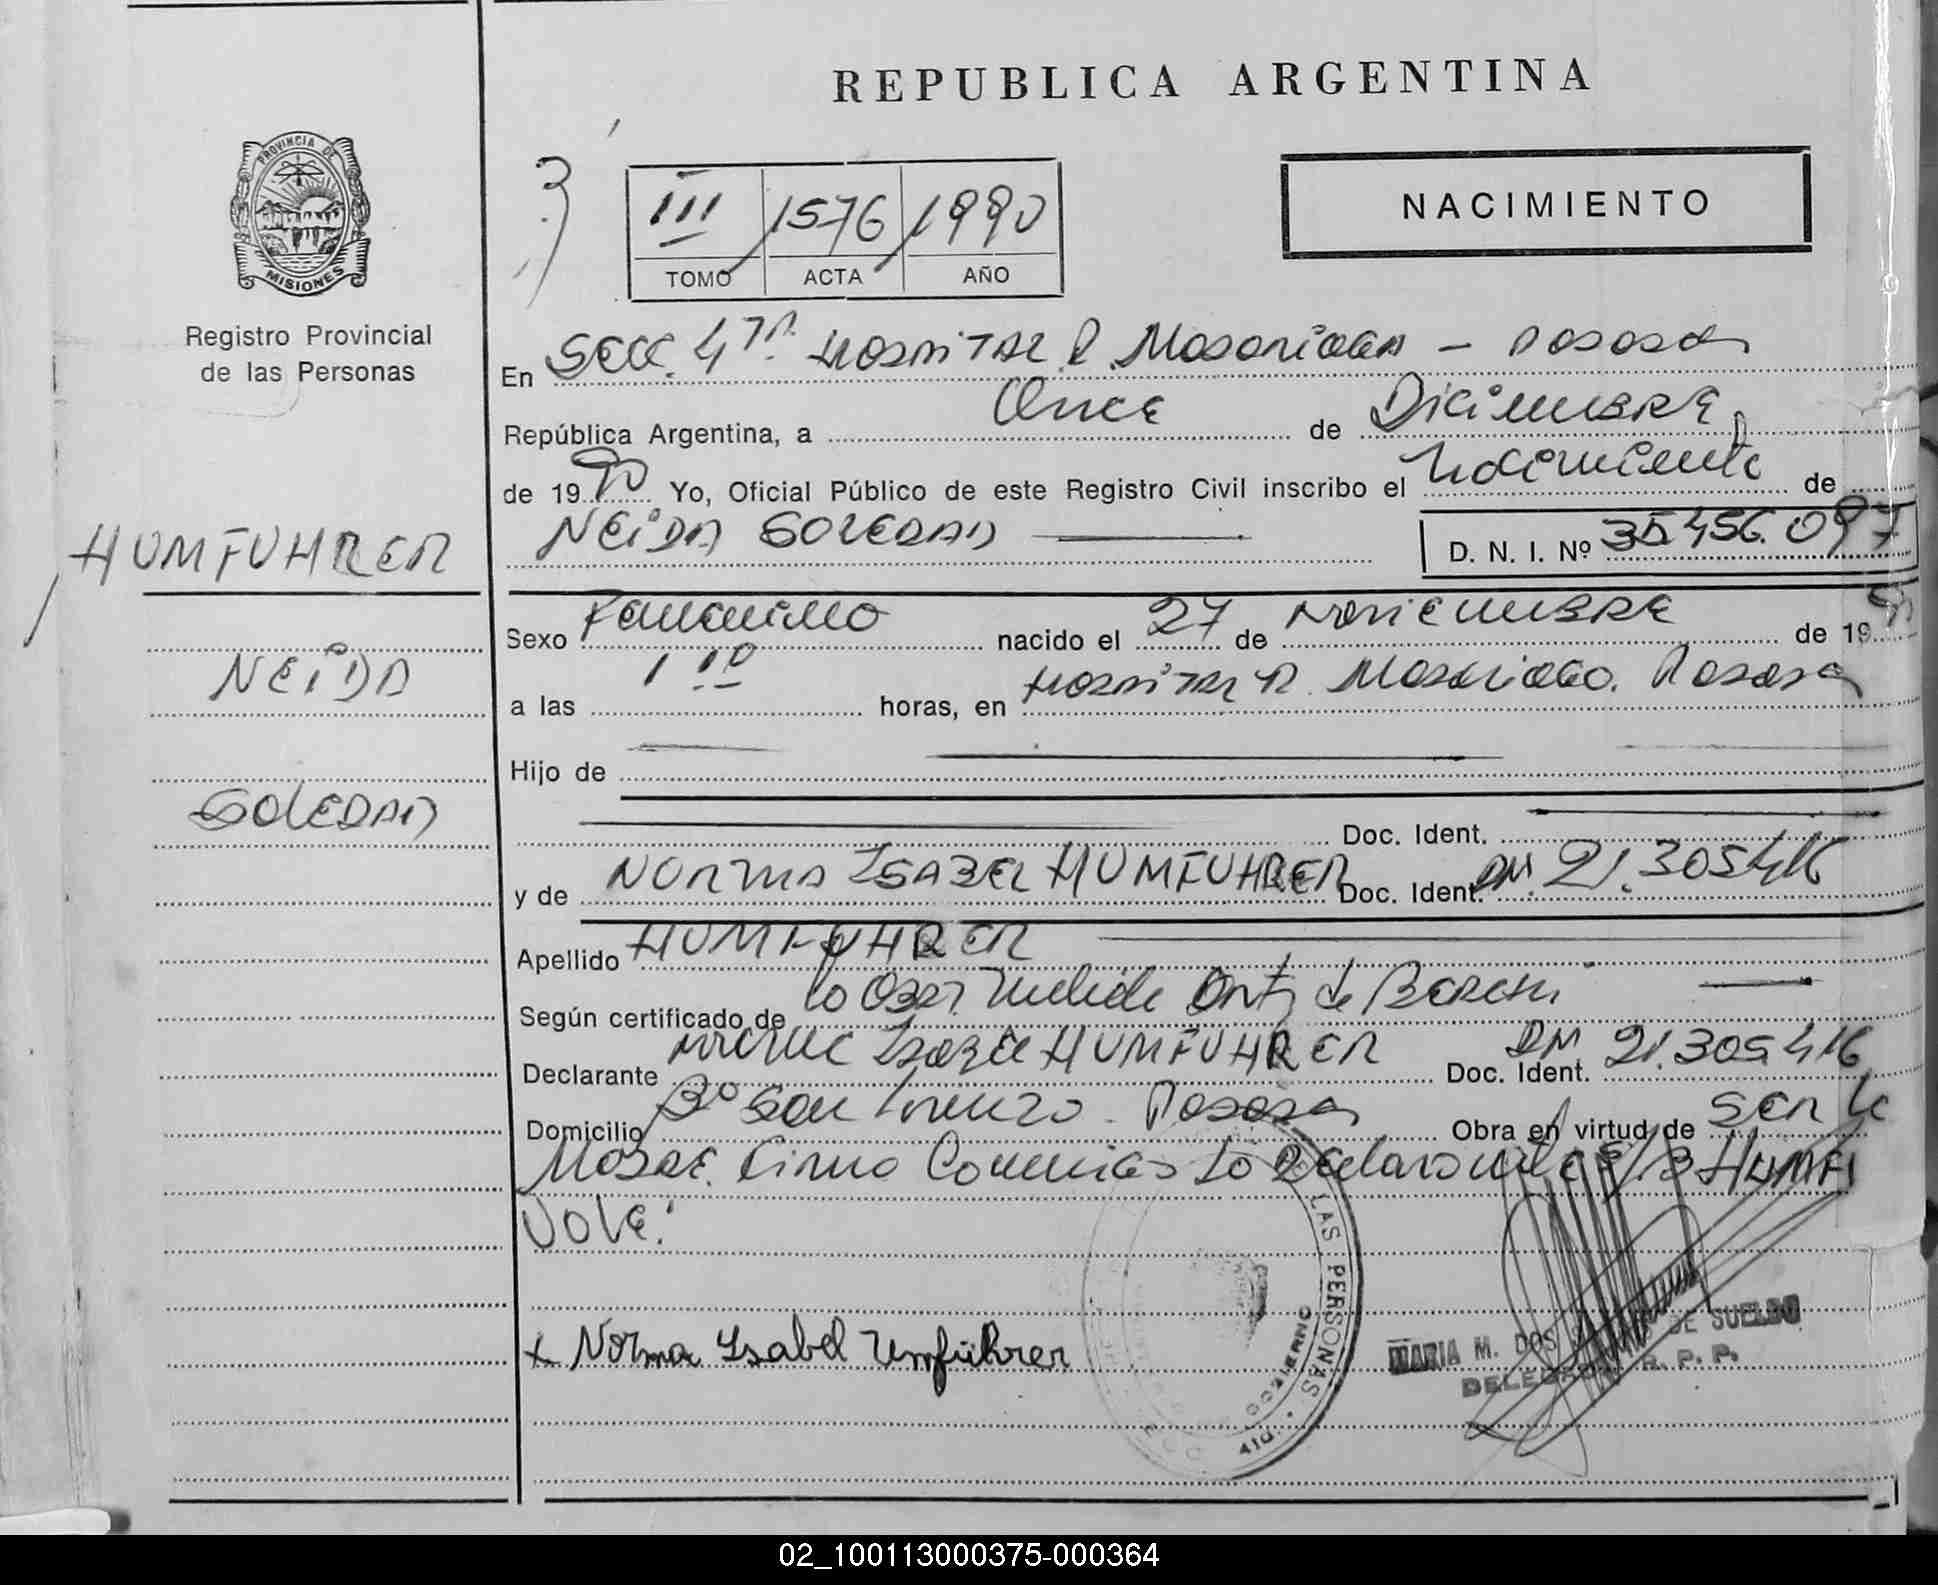 REPUBLICA ARGENTINA
PROVINCIA DE
MISIONES
Registro Provincial
de las Personas
III 1576 1990
TOMO ACTA AÑO
NACIMIENTO
En SECC. 4ta HOSPITAL R. Madariaga - Posadas
República Argentina, a Once de Diciembre
de 1990 Yo, Oficial Público de este Registro Civil inscribo el Nacimiento de
NEIDA SOLEDAD D. N. I. Nº 35.456.097
HUMFUHRER
NEIDA
SOLEDAD
Sexo Femenino nacido el 27 de Noviembre de 1990
a las 1 10 horas, en Hospital R. Madariaga. Posadas
Hijo de
Doc. Ident.
y de NORMA ISABEL HUMFUHRER Doc. Ident. DNI. 21.305.416
Apellido HUMFUHRER
Según certificado de la Obst. Ortiz de
Declarante Norma Isabel HUMFUHRER Doc. Ident. DNI 21.305.416
Domicilio Bº San Lorenzo. Posadas Obra en virtud de Ser la
Madre. Firma Conmigo la Declarante E/B HUMFU
VALE.
x Norma Isabel Umfuhrer
LAS PERSONAS
GOBIERNO
MARIA M. DOS DE SUELDO
R. P. P.
02_100113000375-000364